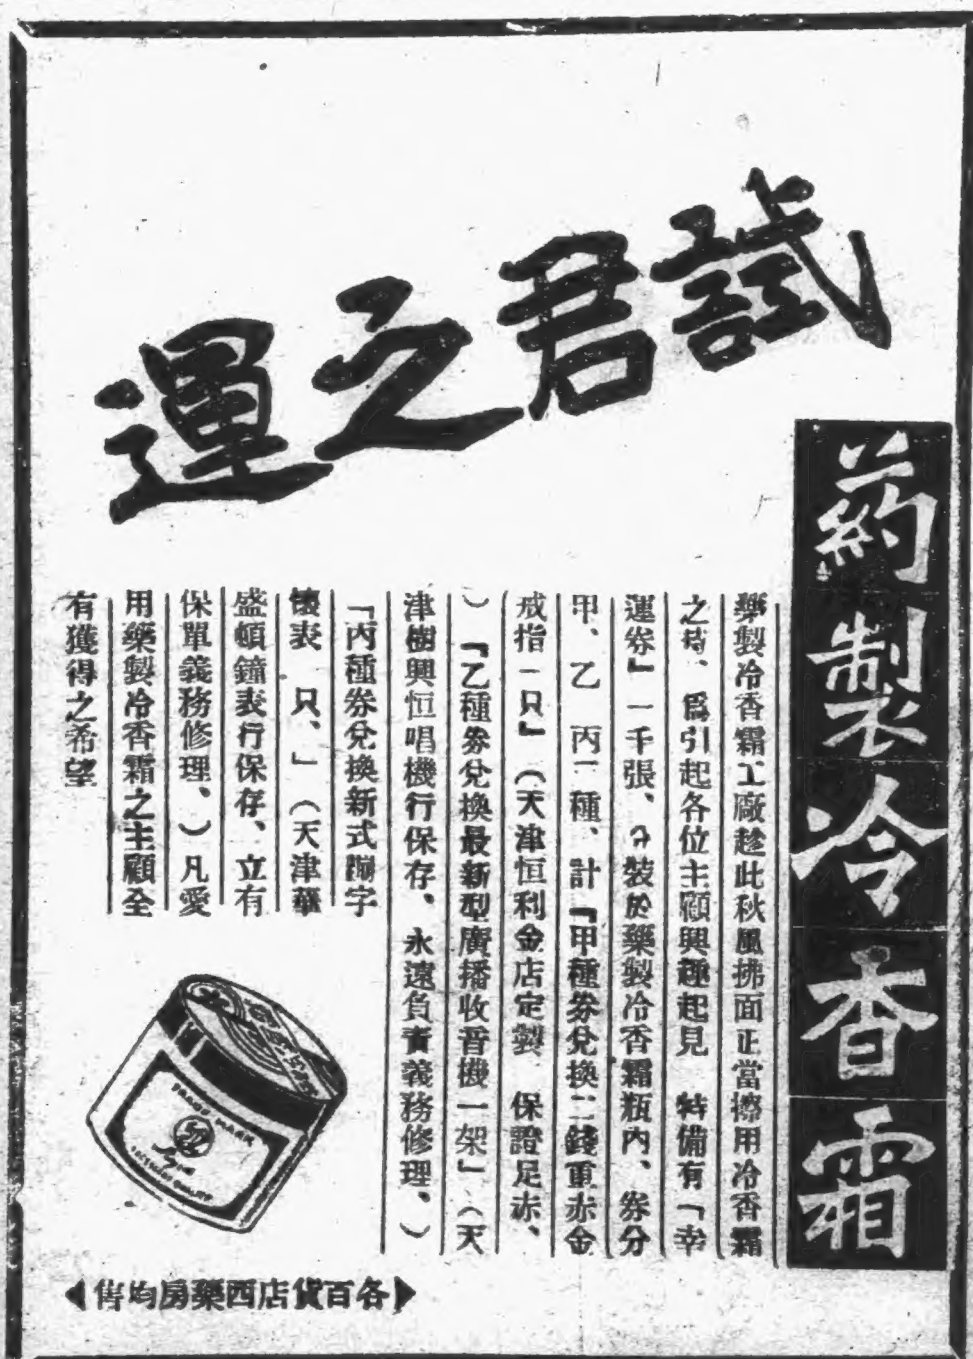 試君之運
药製冷香霜
藥製冷香霜工廠趁此秋風拂面正當擦用冷香霜
之時、爲引起各位主顧興趣起見　特備有「幸
運券』一千張、分裝於藥製冷香霜瓶内、券分
甲、乙　丙三種、計『甲種券兌換二錢重赤金
戒指一只』（天津恒利金店定製　保證足赤、
）『乙種券兌換最新型廣播收音機一架」（天
津樹興恒唱機行保存、永遠負責義務修理、）
「丙種券兌換新式蹦字
懷表　只、」（天津華
盛頓鐘表行保存、立有
保單義務修理、）凡愛
用藥製冷香霜之主顧全
有獲得之希望
TRADE MARK
各百貨店西藥房均售